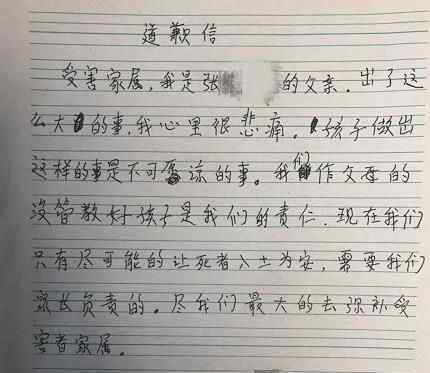 道歉信
受害家属，我是张 的父亲．出了这
么大的事，我心里很悲痛．孩子做出
这样的事是不可原谅的事。我们作父母的
没管教好孩子是我们的责任．现在我们
只有尽可能的让死者入土为安，需要我们
家长负责的．尽我们最大的去弥补受
害者家属．